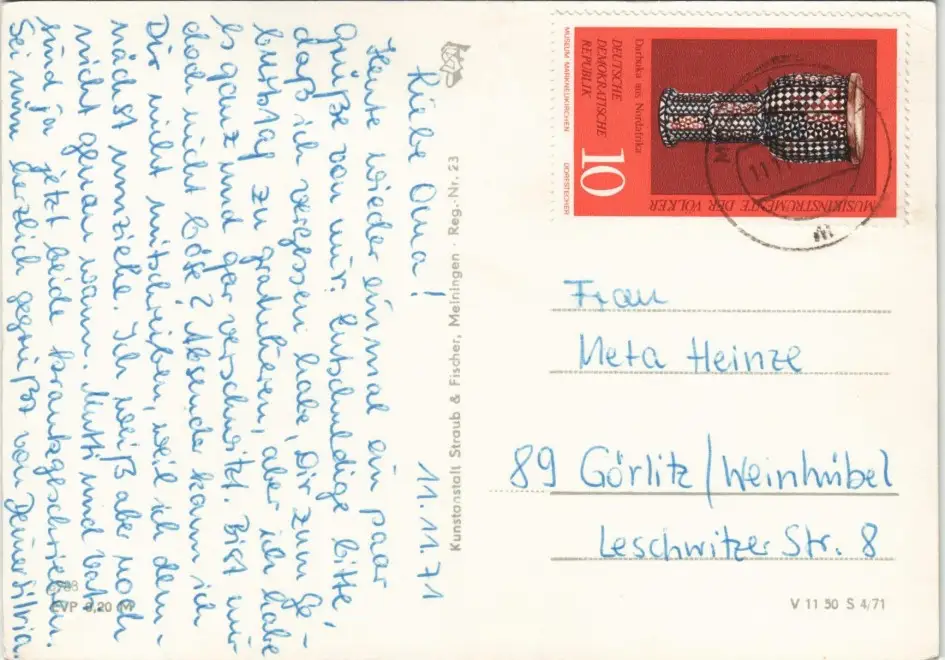 Liebe Oma! 11.11.71
Heute wieder einmal ein paar
Grüße von mir. Entschuldige bitte,
daß ich vergessen habe, Dir zum Ge-
burtstag zu gratulieren, aber ich habe
es ganz und gar verschwitzt. Bist mir
doch nicht böse? Absender kann ich
Dir nicht mitschreiben, weil ich dem-
nächst umziehe. Ich weiß aber noch
nicht genau wann. Mutti und Vati
sind ja jetzt beide krankgeschrieben.
Sei nun herzlich gegrüßt von Deiner Silvia.
Kunstanstalt Straub & Fischer, Meiningen · Reg.-Nr. 23
EVP 0,20 M
MUSIKINSTRUMENTE DER VÖLKER
Darbuka aus Nordafrika
DEUTSCHE
DEMOKRATISCHE
REPUBLIK
10
MUSEUM MARKNEUKIRCHEN DORFSTECHER
Frau
Meta Heinze
89 Görlitz/Weinhübel
Leschwitzer Str. 8
V 11 50 S 4/71